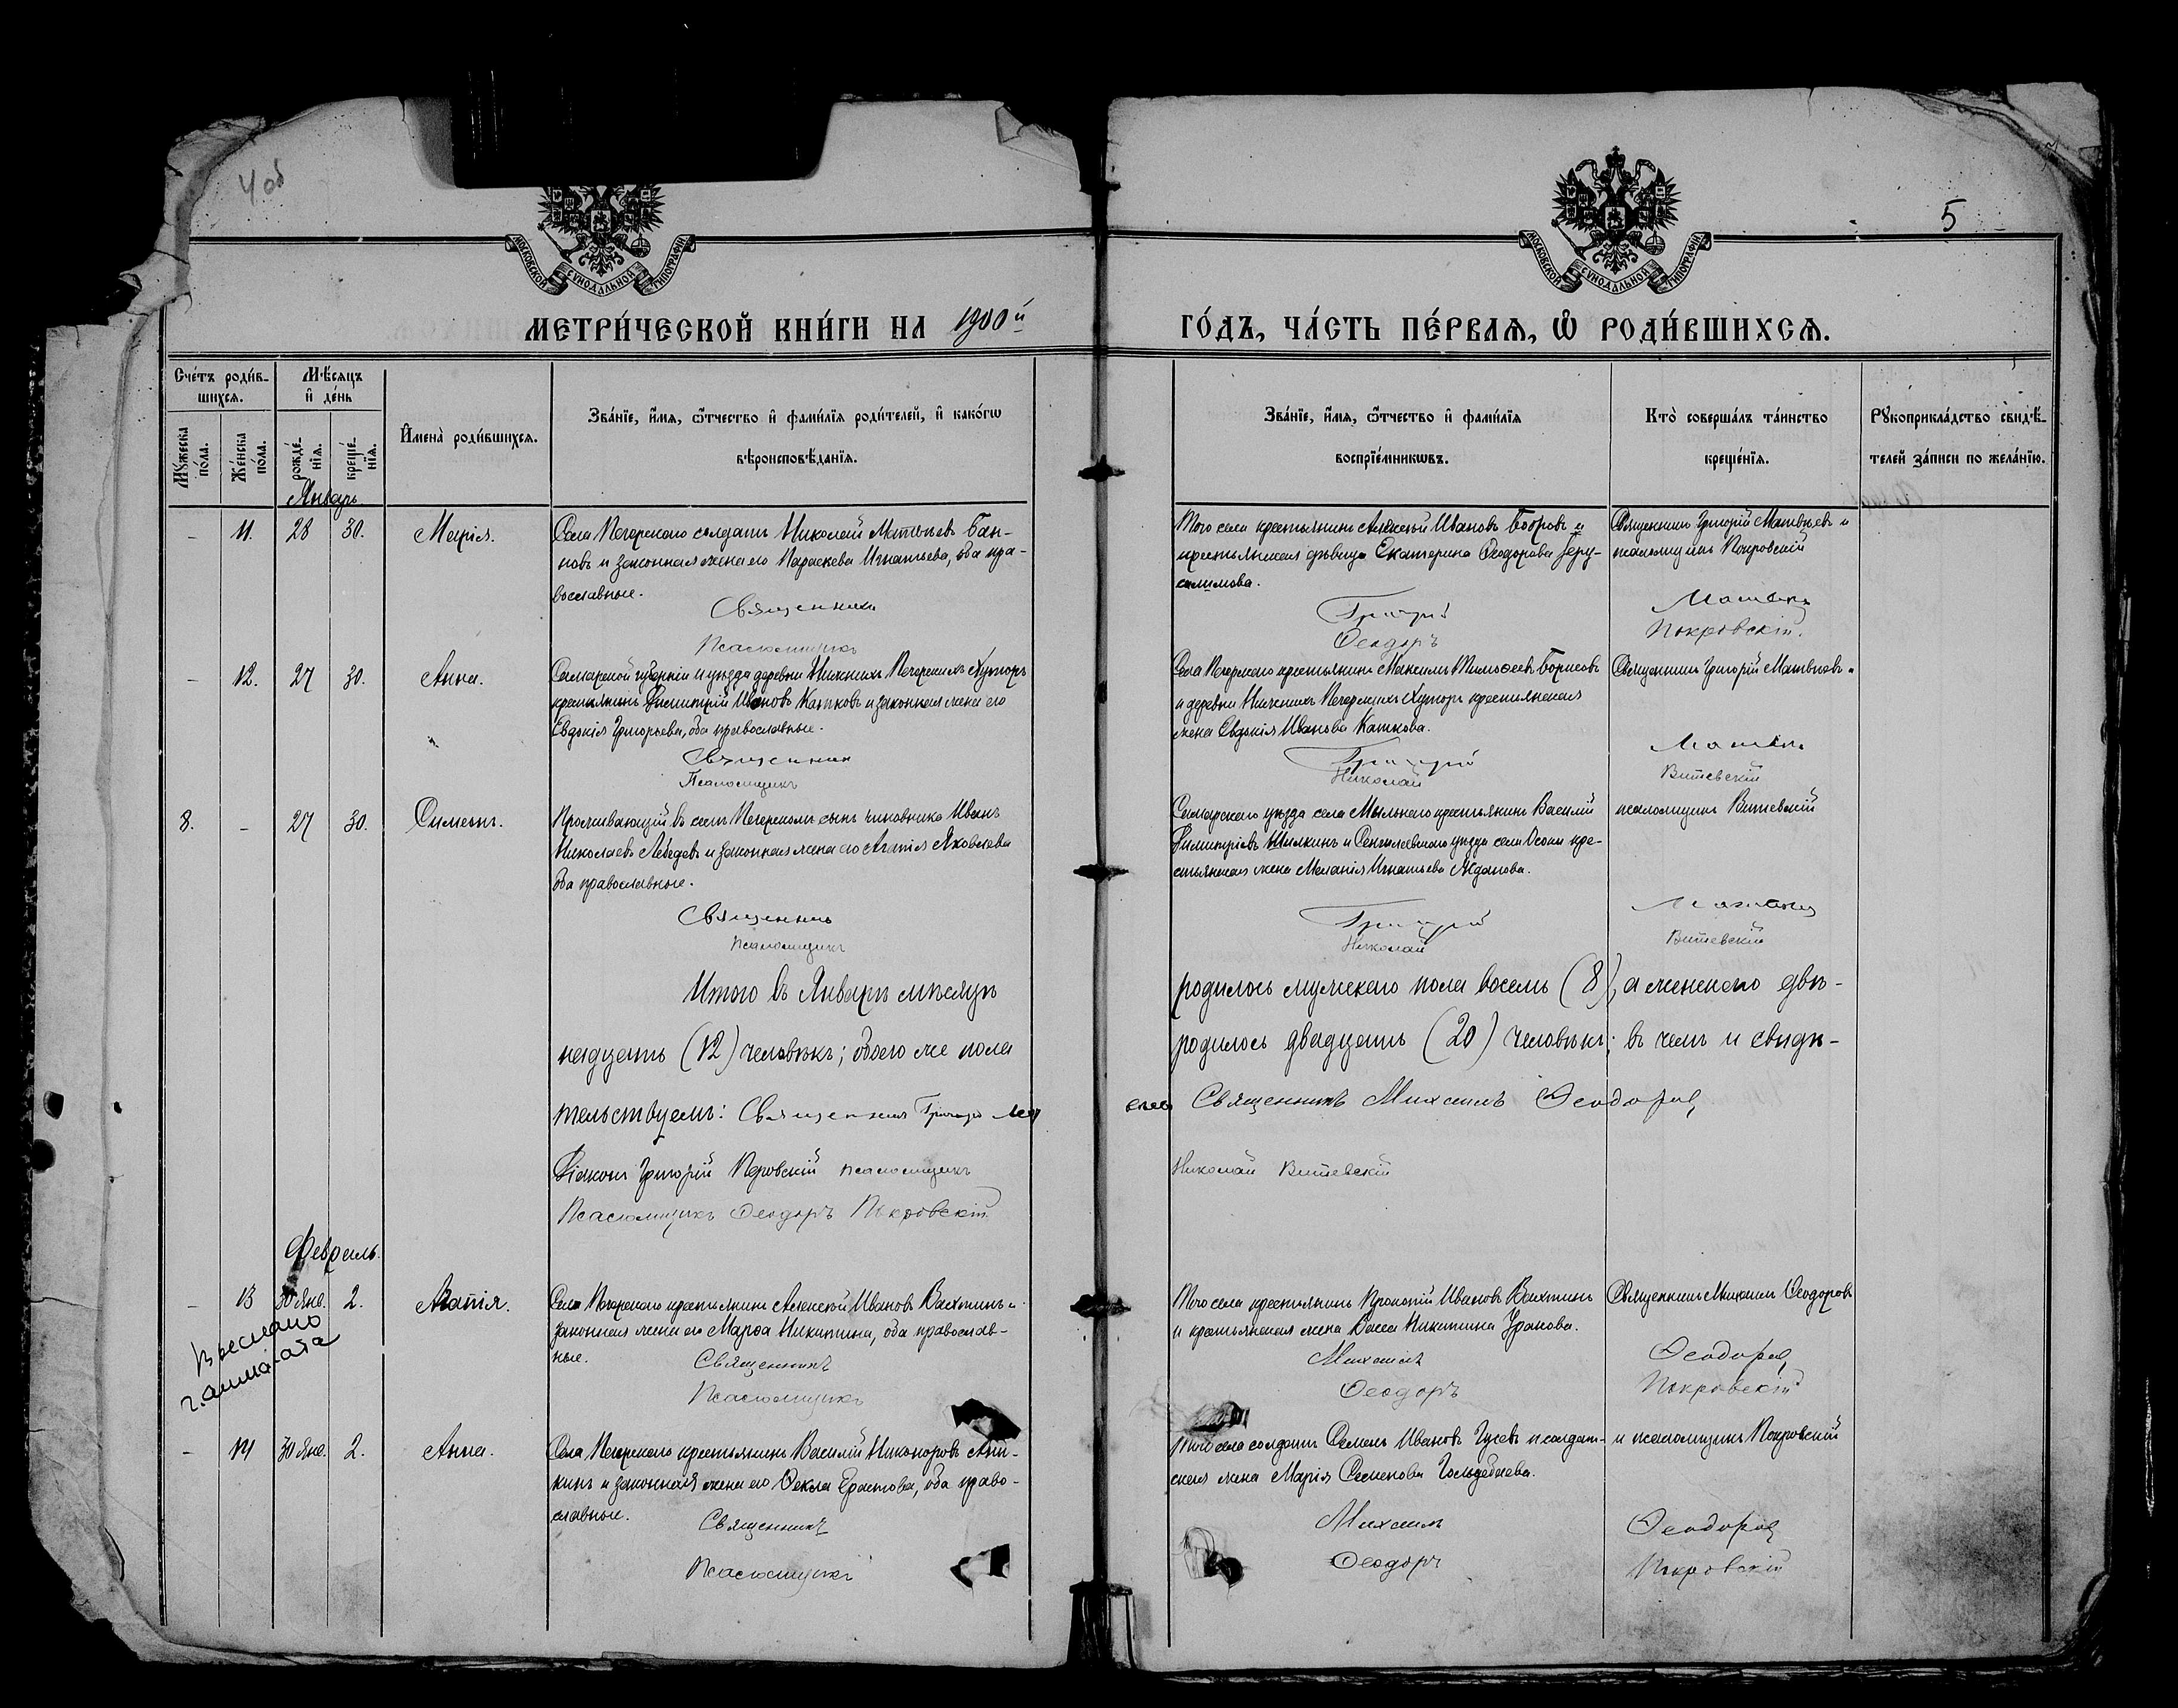 4 об
5
МОСКОВСКОЙ СѴНОДАЛЬНОЙ ТИПОГРАФІИ
МОСКОВСКОЙ СѴНОДАЛЬНОЙ ТИПОГРАФІИ
МЕТРИ́ЧЕСКОЙ КНИ́ГИ НА 1900й
ГО́ДЪ, ЧА́СТЬ ПЕ́РВАѦ, Ѡ҆ РОДИ́ВШИХСѦ.
Сче́тъ роди́в-
шихсѧ.
Мѣ́сѧцъ
и҆ де́нь
Мꙋ́жеска
по́ла.
Же́нска
по́ла.
рожде́-
нїѧ.
креще́-
нїѧ.
И҆мена̀ роди́вшихсѧ.
Зва́нїе, и҆́мѧ, ѻ҆́тчество и҆ фами́лїѧ роди́телей, и҆ како́гѡ
вѣроисповѣ́данїѧ.
Зва́нїе, и҆́мѧ, ѻ҆́тчество и҆ фами́лїѧ
воспрїе́мникѡвъ.
Кто̀ соверша́лъ та́инство
креще́нїѧ.
Рꙋкоприкла́дство свидѣ́-
телей за́писи по жела́нїю.
Январь
– 11. 28 30. Марія.
Села Печерскаго солдатъ Николай Матвѣевъ Бан-
новъ и законная жена его Параскева Игнатьева, оба пра-
вославные.
Священникъ
Псаломщикъ
Того села крестьянинъ Алексѣй Ивановъ Бобровъ и
крестьянская дѣвица Екатерина Ѳеодорова Іеру-
салимова.
Григорій
Ѳеодоръ
Священникъ Григорій Матвѣевъ и
псаломщикъ Покровскій
Матвѣевъ
Покровскій.
– 12. 27 30. Анна.
Самарской губерніи и уѣзда деревни Нижнихъ Печерскихъ Хуторъ
крестьянинъ Димитрій Ивановъ Катковъ и законная жена его
Евдокія Григорьева, оба православные.
Священникъ
Псаломщикъ
Села Печерскаго крестьянинъ Максимъ Тимоѳеевъ Борисовъ
и деревни Нижнихъ Печерскихъ Хуторъ крестьянская
жена Евдокія Иванова Каткова.
Григорій
Николай
Священникъ Григорій Матвѣевъ и
Матвѣевъ
Витевскій
8. – 27 30. Симеонъ.
Проживающій въ селѣ Печерскомъ сынъ чиновника Иванъ
Николаевъ Лебедевъ и законная жена его Агапія Яковлева
оба православные.
Священникъ
псаломщикъ
Самарскаго уѣзда села Мыльнаго крестьянинъ Василій
Димитріевъ Шилкинъ и Сенгилеевскаго уѣзда села Осоки кре-
стьянская жена Меланія Игнатьева Жданова.
Григорій
Николай
псаломщикъ Витевскій
Матвѣевъ
Витевскій
Итого въ Январѣ мѣсяцѣ
родилось мужскаго пола восемь (8), а женскаго двѣ-
надцать (12) человѣкъ; обоего же пола
родилось двадцать (20) человѣкъ; въ чемъ и свидѣ-
тельствуемъ: Священникъ Григорій Мат
Священникъ Михаилъ Ѳеодоровъ
Діаконъ Григорій Перовскій псаломщикъ
Николай Витевскій
Псаломщикъ Ѳеодоръ Покровскій
Февраль.
– 13 30 Янв. 2. Агапія.
Села Печерскаго крестьянинъ Алексѣй Ивановъ Вахтинъ и
законная жена его Марѳа Никитина, оба православ-
ные.
Священникъ
Псаломщикъ
Того села крестьянинъ Прокопій Ивановъ Вахтинъ
и крестьянская жена Васса Никитина Уракова.
Михаилъ
Ѳеодоръ
Священникъ Михаилъ Ѳеодоровъ
Ѳеодоровъ
Покровскій
– 14 30 Янв. 2. Анна.
Села Печерскаго крестьянинъ Василій Никоноровъ Ани-
кинъ и законная жена его Ѳекла Ерастова, оба право-
славные.
Священникъ
Псаломщикъ
Того села солдатъ Семенъ Ивановъ Гусевъ и солдат-
ская жена Марія Семенова
Михаилъ
Ѳеодоръ
и псаломщикъ Покровскій
Ѳеодоровъ
Покровскій